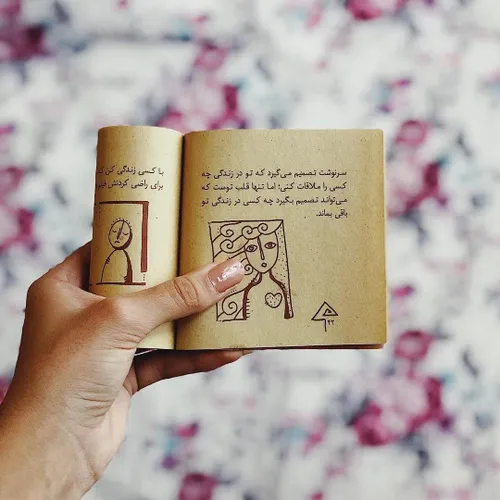 سرنوشت تصمیم می‌گیرد که تو در زندگی چه
کسی را ملاقات کنی؛ اما تنها قلب توست که
می‌تواند تصمیم بگیرد چه کسی در زندگی تو
باقی بماند.
با کسی زندگی کن که
برای راضی کردنش
۴۲